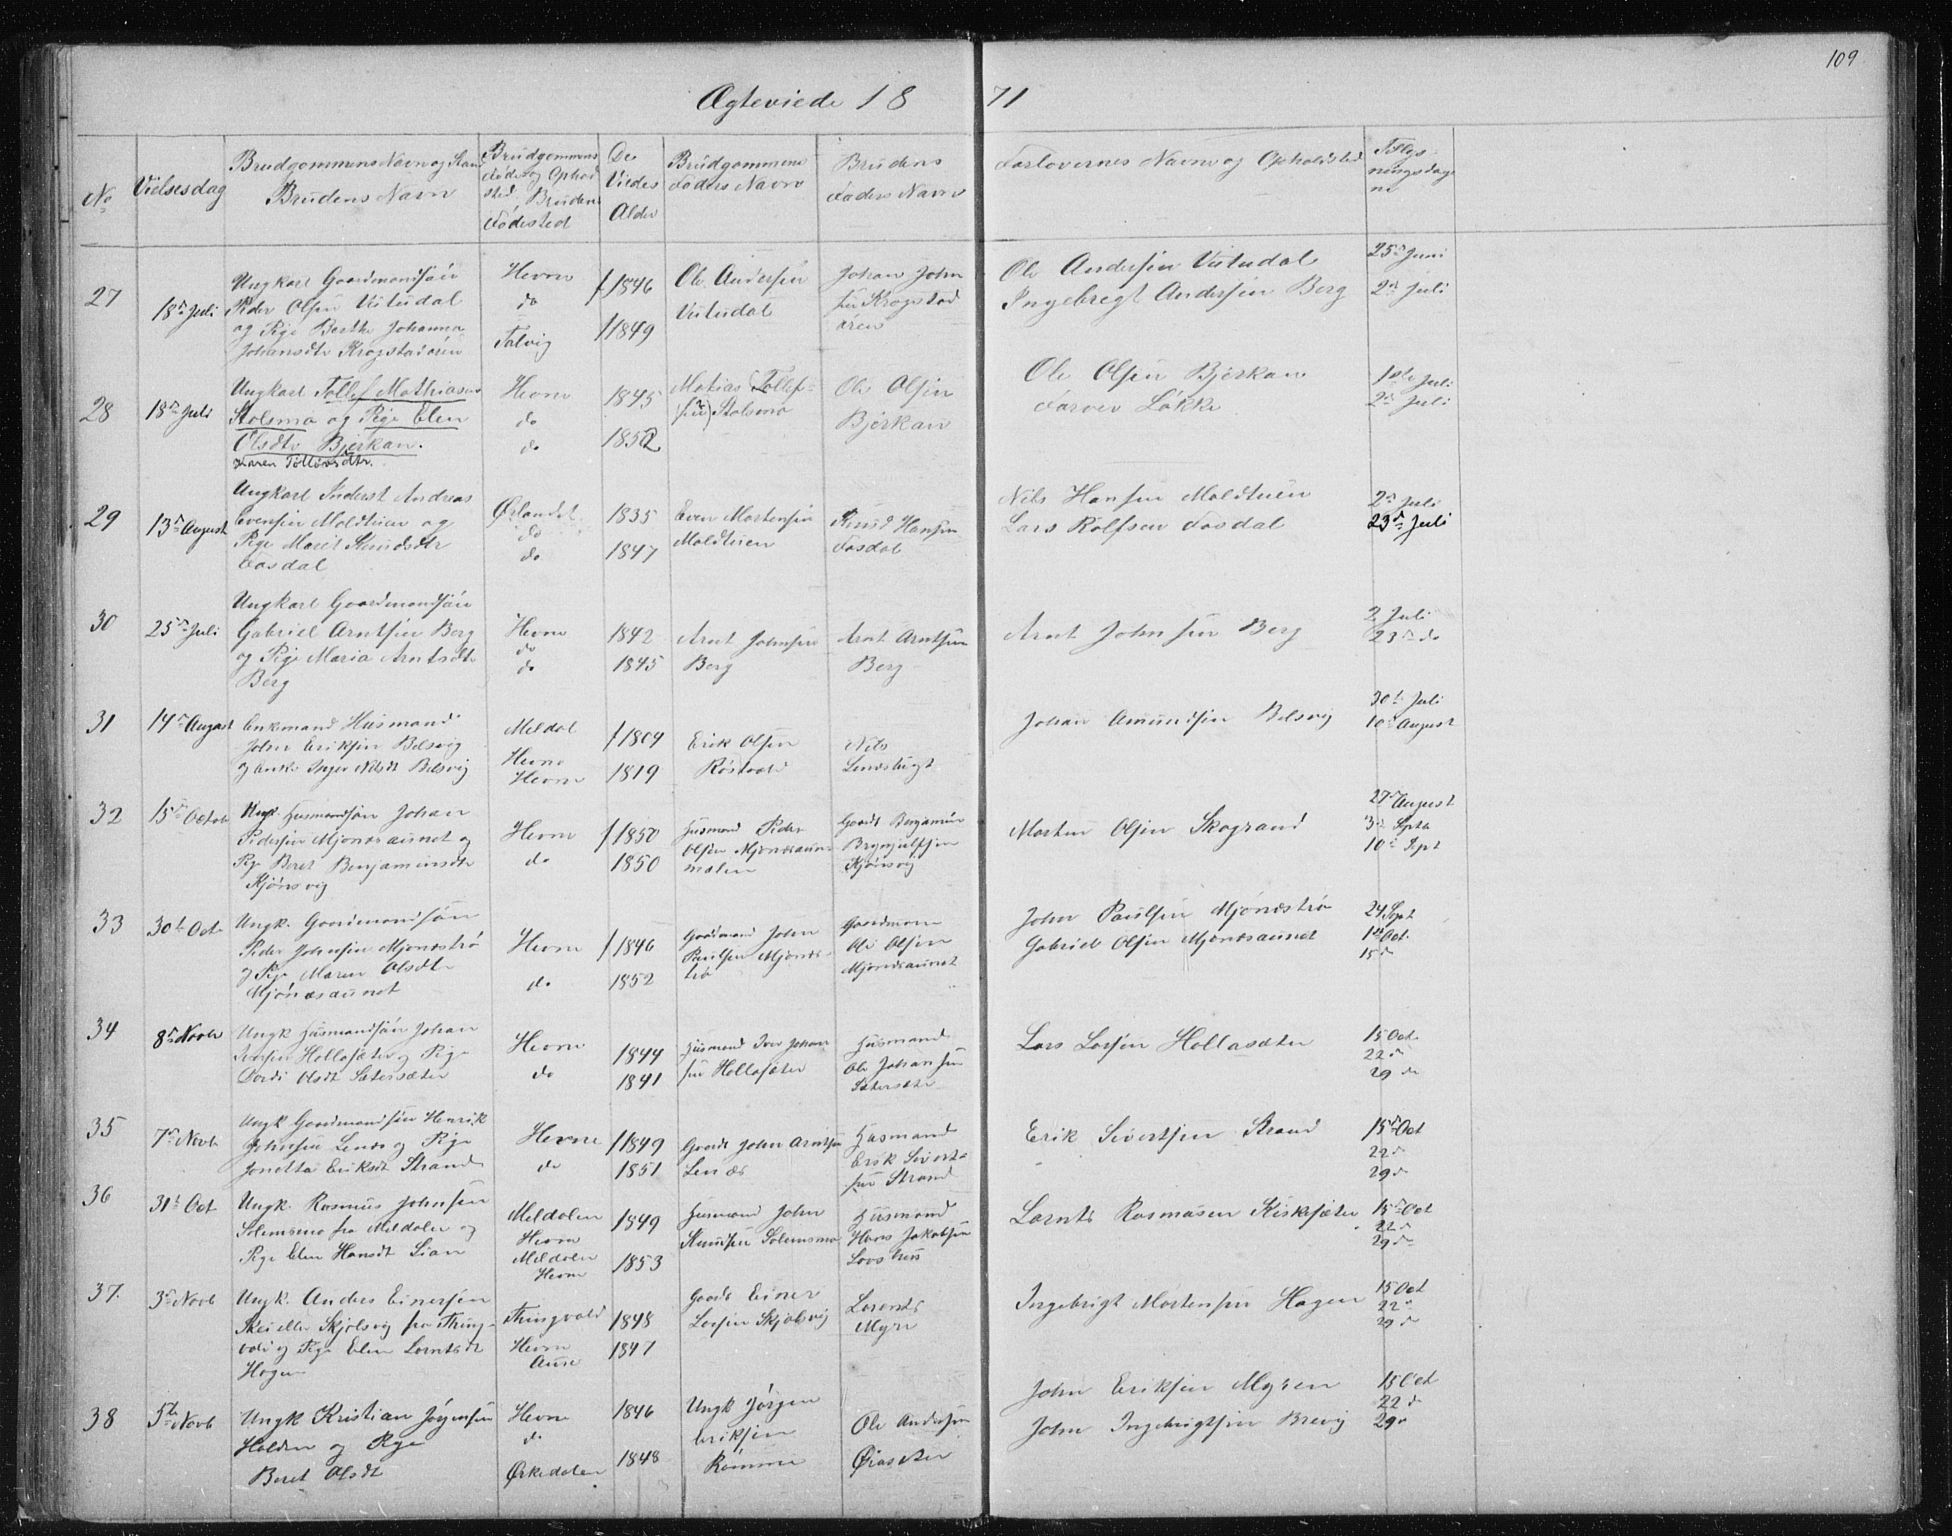 109
Ægteviede 1871
No
Vielsesdag
Brudgommens Navn og Stand
Brudens Navn
Brudgommens
Føde og Ophold
sted, Brudens
Fødested
De
Viedes
Alder
Brudgommens
Faders Navn
Brudens
Faders Navn
Forlovernes Navne og Opholdsted
Tillys
ningsdage
ne
27
18de Juli
Ungkarl Gaardmandsøn
Peder Olsen Vitudal
og Pige Berthe Johanna
Johansdtr Krogstadøren
Hevne
do
Talvig
1846
1849
Ole Andersen
Vitudal
Johan John
sen Krogstad
øren
Ole Andersen Vitudal
Ingebregt Andersen Berg
25de Juni
2den Juli
28
18de Juli
Ungkarl Tollef Mathiasen
Stolsmo og Pige Elen
Olsdtr Bjerkan.
Karen Tollovsdtr.
Hevne
do
do
1845
1852
Matias Tollef-
sen Stolsmo
Ole Olsen
Bjerkan
Ole Olsen Bjerkan
Farver Løkke
2de Juli
29
13de August
Ungkarl Inderst Andreas
Evensen Moldtuen og
Pige Marit Knudsdtr
Fosdal
Ørlandet
do
do
1835
1847
Even Mortensen
Moldtuen
Knud Hansen
Fosdal
Nils Hansen Moldtuen
Lars Rolfsen Fosdal
2den Juli
23de Juli
30
25de Juli
Ungkarl Gaardmandsøn
Gabriel Arntsen Berg
og Pige Maria Arntsdtr
Berg
Hevne
do
do
1842
1845
Arnt Johnsen
Berg
Arnt Arntsen
Berg
Arnt Johnsen Berg
2 Juli
23de do
31
14de August
Enkemand Husmand
John Eriksen Belsvig
og Enke Inger Nilsdt Belsvig
Meldal
Hevne
Hevne
1809
1819
Erik Olsen
Nils
Johan Amundsen Belsvig
30te Juli
10de August
32
15de October
Ungk. Husmandsøn Johan
Pedersen Mjønesaunet og
Pige Beret Benjaminsdtr
Kjønsvig
Hevne
do
1850
1850
Husmand Peder
Olsen Mjønesaun-
Gaardt Benjamin
Brynjulfsen
Kjønsvig
Morten Olsen Skogrand
27de August
3de Septb
10de Sept
33
30te Octr
Ungk. Gaardmandsøn
Peder Johnsen Mjønestrø
og Pige Maren Olsdtr
Mjønesaunet
Hevne
do
1846
1852
Gaardmand John
Paulsen Mjønes-
trø
Gaardmann
Ole Olsen
Mjønesaunet
John Paulsen Mjønestrø
Gabriel Olsen Mjønesaunet
24 Sept
1ste Oct.
15 d
34
8de Novbr
Ungk Husmandsøn Johan
Iversen Hollasæter og Pige
Dordi Olsdt Sætersæter
Hevne
do
1844
1841
Husmand Iver Johan
sen Hollasæter
Husmand
Ole Johansen
Sætersæter
Lars Larsen Hollasæter
15 Oct.
22 d
29 do
35
7de Novb
Ungk Gaardmandsøn Henrik
Johnsen Lenes og Pige
Jonetta Eriksdt Strand
Hevne
do
1849
1851
Gaardt John Arntsen
Lenæs
Husmand
Erik Sivert-
sen Strand
Erik Sivertsen Strand
15de Oct
22 d
29 d
36
31te Oct
Ungk. Rasmus Johnsen
Solemsmo fra Meldalen og
Pige Elen Hansdt Lian
Meldalen
Hevne
Meldalen
Hevne
1849
1853
Husmand John
Knudsen Solemsmo
Husmand
Hans Jakobsen
Lornts Rasmusen Kirksæter
15de Oct
22 d
29 d
37.
3de Novb
Ungk. Anders Einersen
Skei eller Skjølsvig fra Thing-
vold og Pige Elen Lorntsdt
Hagen
Thingvold
Hevne
Aure
1848
1847
Gaardt Einer
Larsen Skjølsvig
Lorents
Myre
Ingebrigt Mortensen Hagen
15 Oct
22 d
29 d
38
5te Novb
Ungk Kristian Jørgensen
Holden og Pige
Beret Olsdt
Hevne
do
Ørkedalen
1846
1848
Ungk Jørgen
Eriksen
Rømme
Ole Andersen
Øiasæter
John Eriksen Myren
John Ingebrigtsen Brevig
15 Oct
22 d
29 d